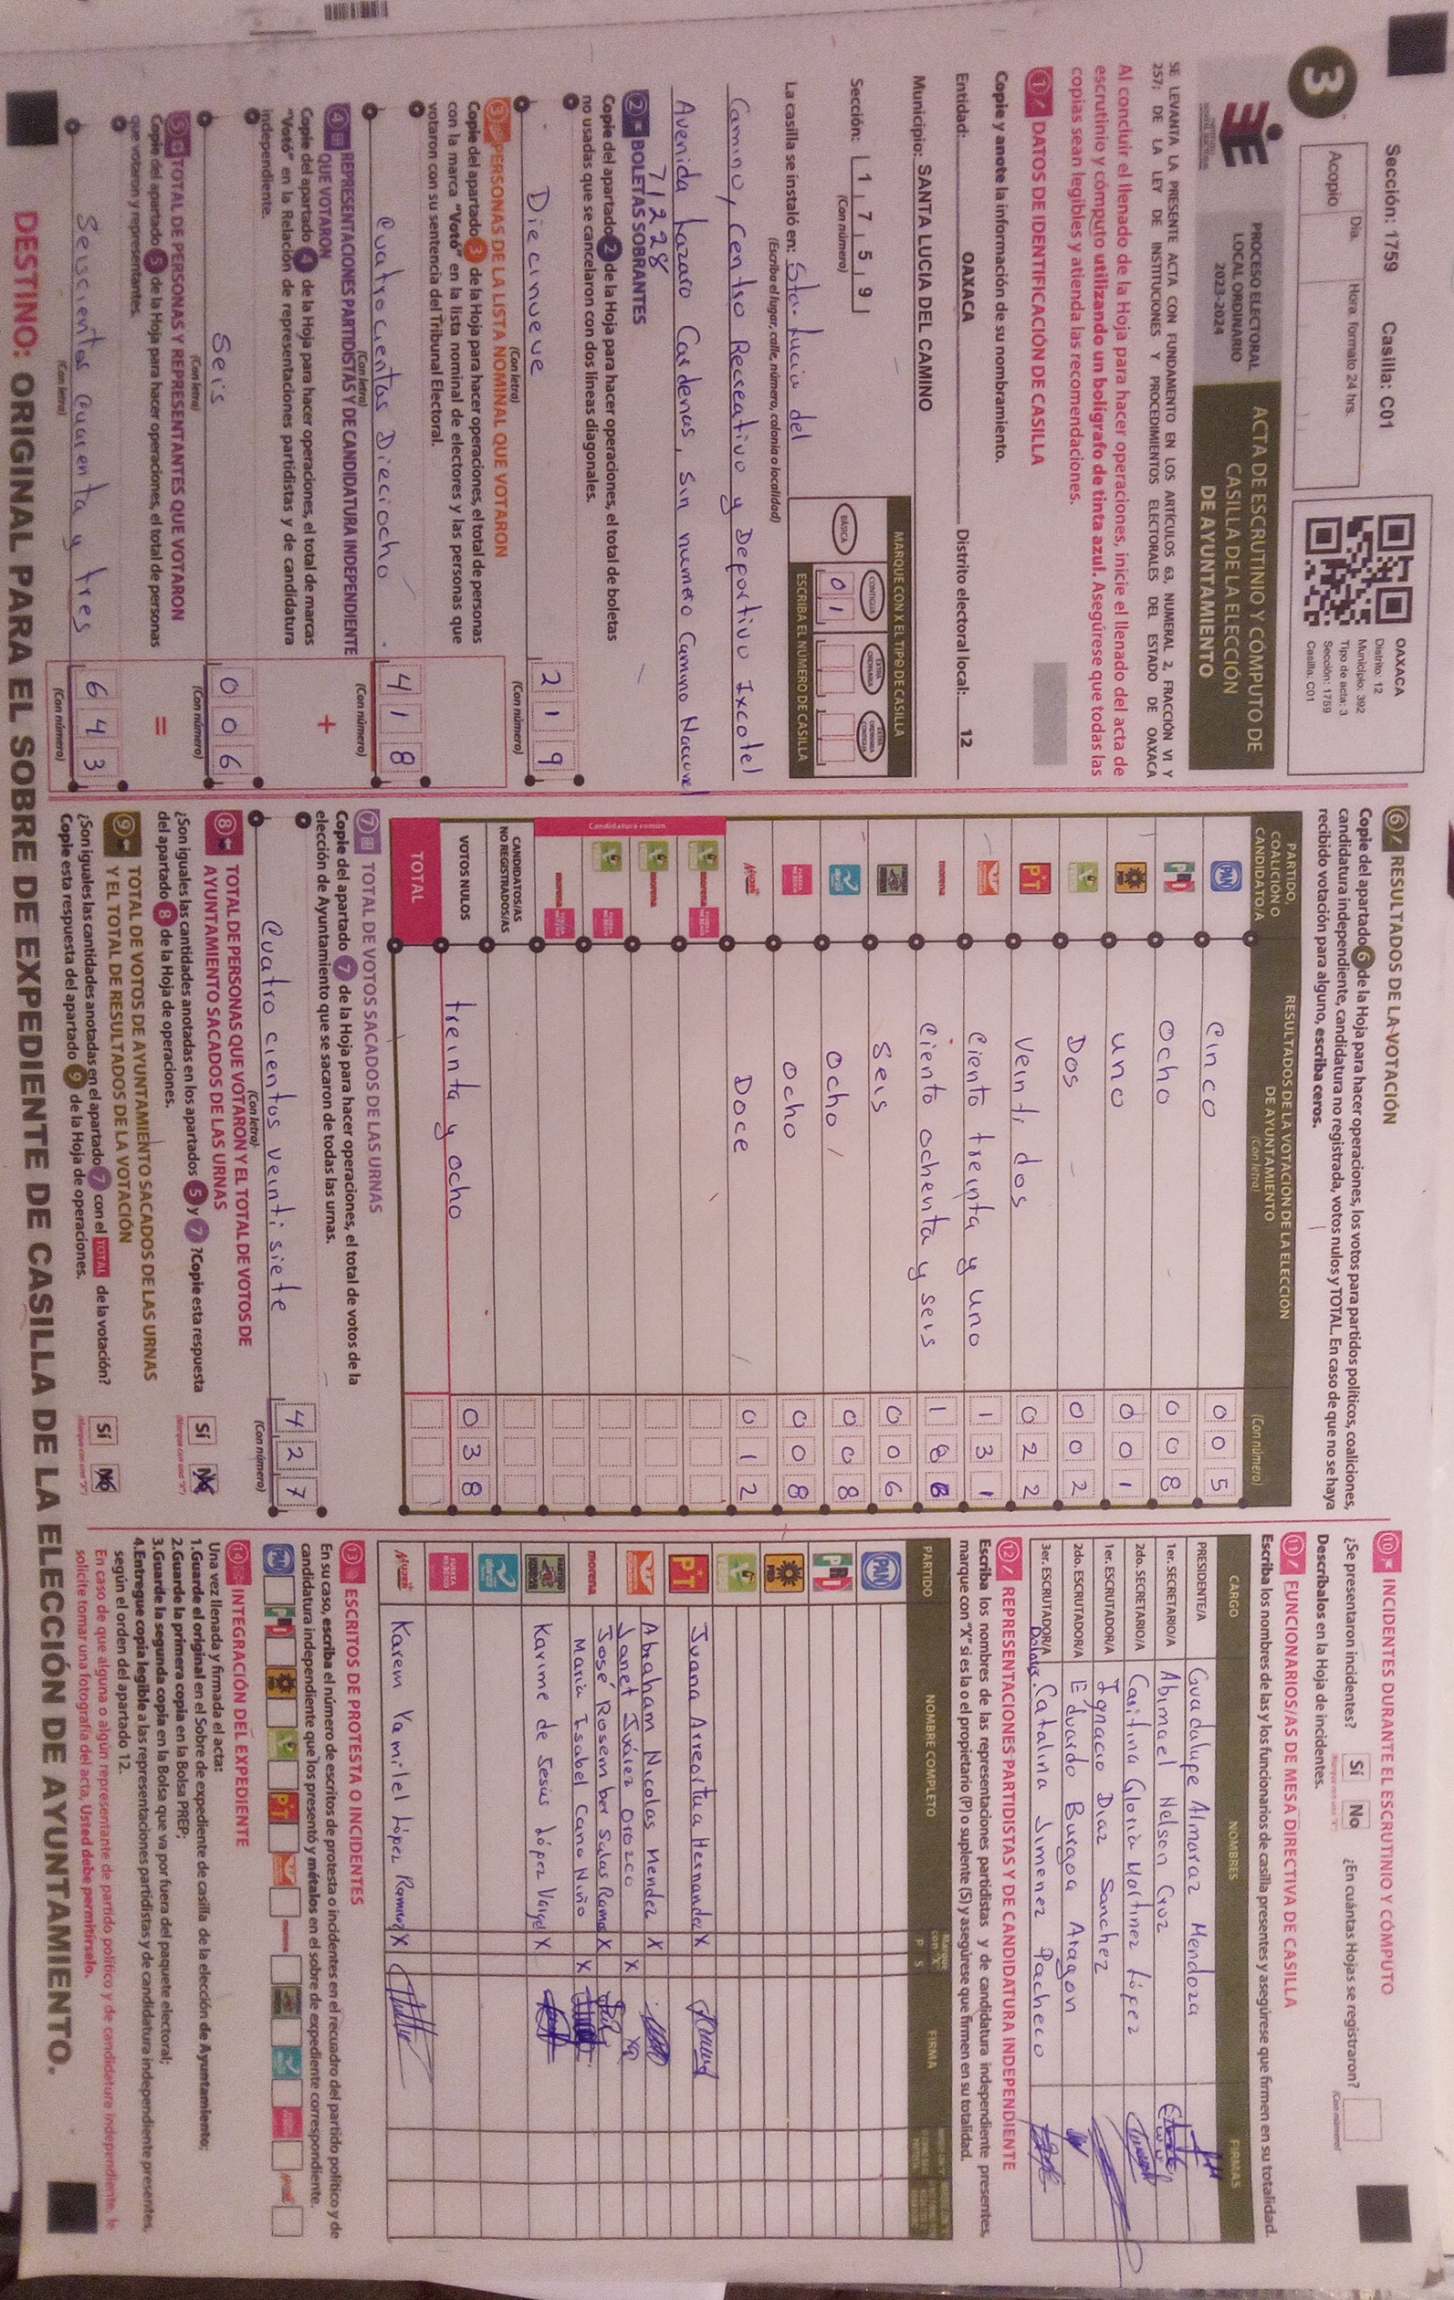 Sección: 1759 Casilla: C01
3
Día. Hora. formato 24 hrs.
Acopio
OAXACA
Distrito: 12
Municipio: 392
Tipo de acta: 3
Sección: 1759
Casilla: C01
PROCESO ELECTORAL
LOCAL ORDINARIO
2023-2024
ACTA DE ESCRUTINIO Y CÓMPUTO DE
CASILLA DE LA ELECCIÓN
DE AYUNTAMIENTO
SE LEVANTA LA PRESENTE ACTA CON FUNDAMENTO EN LOS ARTÍCULOS 63, NUMERAL 2, FRACCIÓN VI Y
257; DE LA LEY DE INSTITUCIONES Y PROCEDIMIENTOS ELECTORALES DEL ESTADO DE OAXACA
Al concluir el llenado de la Hoja para hacer operaciones, inicie el llenado del acta de
escrutinio y cómputo utilizando un bolígrafo de tinta azul. Asegúrese que todas las
copias sean legibles y atienda las recomendaciones.
1 DATOS DE IDENTIFICACIÓN DE CASILLA
Copie y anote la información de su nombramiento.
Entidad: OAXACA Distrito electoral local: 12
Municipio: SANTA LUCIA DEL CAMINO
Sección: 1 7 5 9
(Con número)
MARQUE CON X EL TIPO DE CASILLA
BÁSICA CONTIGUA EXTRAORDINARIA EXTRAORDINARIA CONTIGUA
0 1
ESCRIBA EL NÚMERO DE CASILLA
La casilla se instaló en: Sta. Lucia del
(Escriba el lugar, calle, número, colonia o localidad)
Camino, Centro Recreativo y Deportivo Ixcotel
Avenida Lazaro Cardenas, sin numero Camino Nacional
71228
2 BOLETAS SOBRANTES
Copie del apartado 2 de la Hoja para hacer operaciones, el total de boletas
no usadas que se cancelaron con dos líneas diagonales.
Diecinueve 2 1 9
(Con letra) (Con número)
3 PERSONAS DE LA LISTA NOMINAL QUE VOTARON
Copie del apartado 3 de la Hoja para hacer operaciones, el total de personas
con la marca "Votó" en la lista nominal de electores y las personas que
votaron con su sentencia del Tribunal Electoral.
Cuatrocientos Dieciocho 4 1 8
(Con letra) (Con número)
4 REPRESENTACIONES PARTIDISTAS Y DE CANDIDATURA INDEPENDIENTE
QUE VOTARON
+
Copie del apartado 4 de la Hoja para hacer operaciones, el total de marcas
"Votó" en la Relación de representaciones partidistas y de candidatura
independiente.
Seis 0 0 6
(Con letra) (Con número)
5 TOTAL DE PERSONAS Y REPRESENTANTES QUE VOTARON
=
Copie del apartado 5 de la Hoja para hacer operaciones, el total de personas
que votaron y representantes.
Seiscientos cuarenta y tres 6 4 3
(Con letra) (Con número)
6 RESULTADOS DE LA VOTACIÓN
Copie del apartado 6 de la Hoja para hacer operaciones, los votos para partidos políticos, coaliciones,
candidatura independiente, candidatura no registrada, votos nulos y TOTAL. En caso de que no se haya
recibido votación para alguno, escriba ceros.
PARTIDO, COALICIÓN O CANDIDATO/A
RESULTADOS DE LA VOTACIÓN DE LA ELECCIÓN
DE AYUNTAMIENTO
(Con letra) (Con número)
PAN Cinco 0 0 5
PRI Ocho 0 0 8
PRD uno 0 0 1
Dos 0 0 2
PT Veinti dos 0 2 2
Ciento treinta y uno 1 3 1
morena Ciento ochenta y seis 1 8 6
Seis 0 0 6
Ocho 0 0 8
Ocho 0 0 8
Doce 0 1 2
Candidatura común
CANDIDATOS/AS
NO REGISTRADOS/AS
VOTOS NULOS treinta y ocho 0 3 8
TOTAL
7 TOTAL DE VOTOS SACADOS DE LAS URNAS
Copie del apartado 7 de la Hoja para hacer operaciones, el total de votos de la
elección de Ayuntamiento que se sacaron de todas las urnas.
Cuatro cientos veinti siete 4 2 7
(Con letra) (Con número)
8 TOTAL DE PERSONAS QUE VOTARON Y EL TOTAL DE VOTOS DE
AYUNTAMIENTO SACADOS DE LAS URNAS
¿Son iguales las cantidades anotadas en los apartados 5 y 7? Copie esta respuesta
del apartado 8 de la Hoja de operaciones.
Sí No
9 TOTAL DE VOTOS DE AYUNTAMIENTO SACADOS DE LAS URNAS
Y EL TOTAL DE RESULTADOS DE LA VOTACIÓN
¿Son iguales las cantidades anotadas en el apartado 7 con el TOTAL de la votación?
Copie esta respuesta del apartado 9 de la Hoja de operaciones.
Sí No
10 INCIDENTES DURANTE EL ESCRUTINIO Y CÓMPUTO
¿Se presentaron incidentes? Sí No ¿En cuántas Hojas se registraron?
Descríbalos en la Hoja de incidentes.
(Con número)
11 FUNCIONARIOS/AS DE MESA DIRECTIVA DE CASILLA
Escriba los nombres de las y los funcionarios de casilla presentes y asegúrese que firmen en su totalidad.
CARGO NOMBRES FIRMAS
PRESIDENTE/A Guadalupe Almaraz Mendoza
1er. SECRETARIO/A Abimael Nelson Cruz
2do. SECRETARIO/A Casitina Gloria Martinez López
1er. ESCRUTADOR/A Ignacio Diaz Sanchez
2do. ESCRUTADOR/A Eduardo Burgoa Aragon
3er. ESCRUTADOR/A Dolores Catalina Jimenez Pacheco
12 REPRESENTACIONES PARTIDISTAS Y DE CANDIDATURA INDEPENDIENTE
Escriba los nombres de las representaciones partidistas y de candidatura independiente presentes,
marque con "X" si es la o el propietario (P) o suplente (S) y asegúrese que firmen en su totalidad.
PARTIDO NOMBRE COMPLETO P S FIRMA
PAN
PRI
PRD
PT Juana Arreortua Hernandez X
Abraham Nicolas Mendez X
Janet Juárez Orozco X
morena José Rosenber Salas Ramos X
Maria Isabel Cano Niño X
Karime de Jesús López Vargas X
Karem Yamilel López Ramirez X
13 ESCRITOS DE PROTESTA O INCIDENTES
En su caso, escriba el número de escritos de protesta o incidentes en el recuadro del partido político y de
candidatura independiente que los presentó y métalos en el sobre de expediente correspondiente.
14 INTEGRACIÓN DEL EXPEDIENTE
Una vez llenada y firmada el acta:
1.Guarde el original en el Sobre de expediente de casilla de la elección de Ayuntamiento;
2.Guarde la primera copia en la Bolsa PREP;
3.Guarde la segunda copia en la Bolsa que va por fuera del paquete electoral;
4.Entregue copia legible a las representaciones partidistas y de candidatura independiente presentes,
según el orden del apartado 12.
En caso de que alguna o algún representante de partido político y de candidatura independiente, le
solicite tomar una fotografía del acta, Usted debe permitírselo.
DESTINO: ORIGINAL PARA EL SOBRE DE EXPEDIENTE DE CASILLA DE LA ELECCIÓN DE AYUNTAMIENTO.